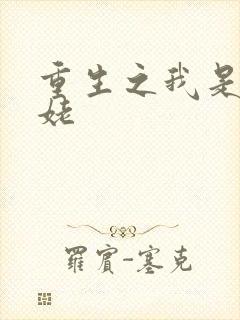 重生之我是
姥
羅賓-塞克